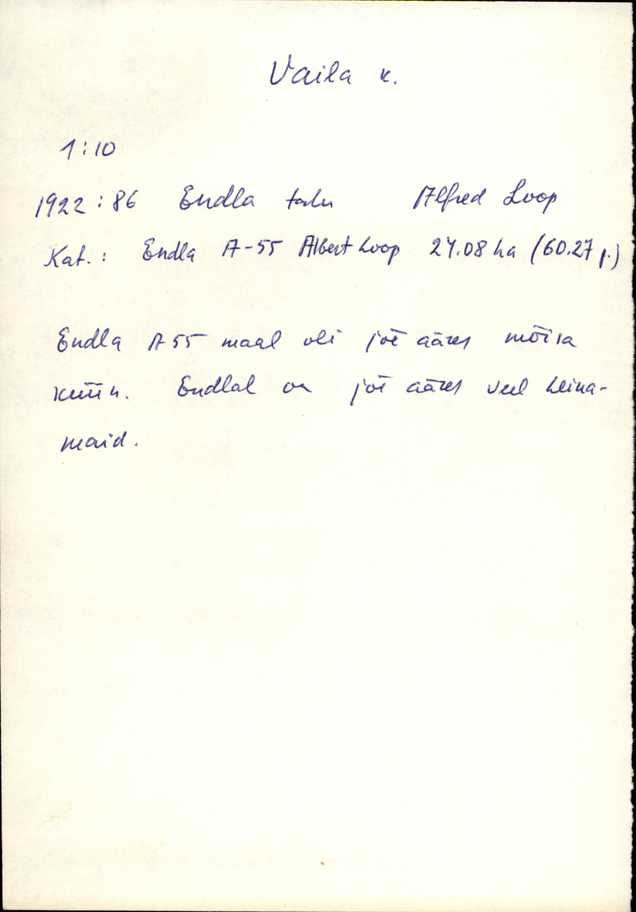 Vaila k.
1:10
1922:86 Endla talu Alfred Loop
Kat.: Endla A-55 Albert Loop 27.08 ha (60.27 p.)
Endla A 55 maal oli jõe ääres mõisa
küün. Endlal on jõe ääres veel heina-
maid.